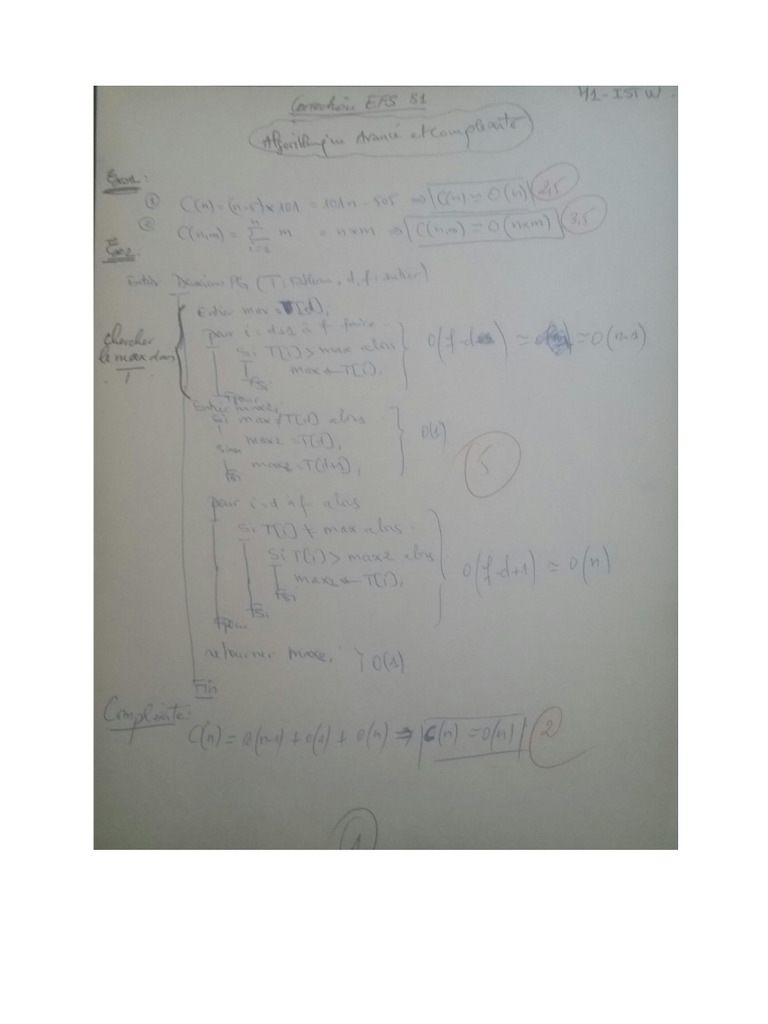 Correction EFS S1
M1-ISTW
Algorithmique Avancé et complexité
Exo1:
① C(n) = (n-5)×101 = 101n - 505 ⇒ C(n) = O(n) 2,5
② C(n,m) = Σ_{i=1}^{n} m = n×m ⇒ C(n,m) = O(n×m) 3,5
Exo2:
Entier DeuxiemePG (T: tableau, d, f: entier)
chercher le max dans T
Entier max = T[d],
pour i = d+1 à f faire
Si T[i] > max alors
max ← T[i],
Fsi
Fpour
O(f-d) ≃ O(n-1)
Entier max2,
Si max ≠ T[d] alors
max2 = T[d],
sinon
max2 = T[d+1],
Fsi
O(1)
5
pour i = d à f alors
Si T[i] ≠ max alors
Si T[i] > max2 alors
max2 ← T[i],
Fsi
Fsi
Fpour
O(f-d+1) ≃ O(n)
retourner max2, } O(1)
Fin
Complexité:
C(n) = O(n-1) + O(1) + O(n) ⇒ C(n) = O(n) 2
1